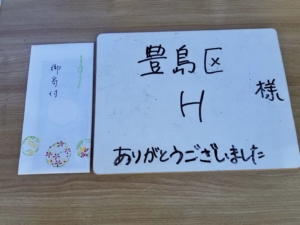 御寄付
豊島区
H
様
ありがとうございました